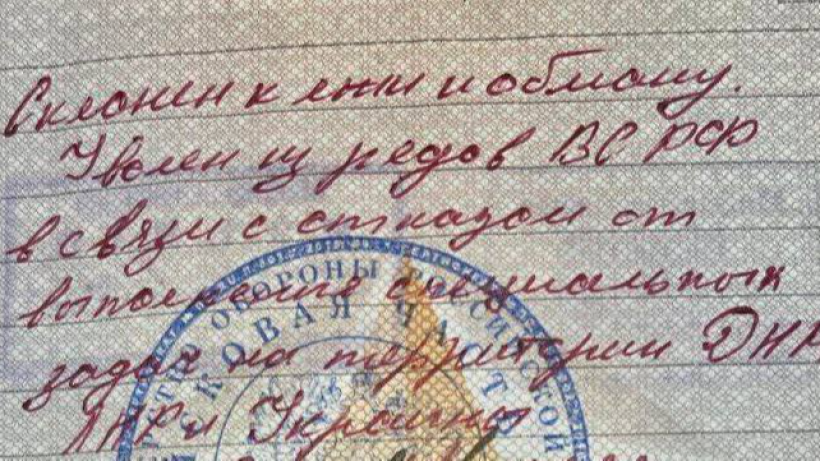 Склонен к лжи и обману.
Уволен из рядов ВС РФ
в связи с отказом от
выполнения специальных
задач на территории ДНР
ЛНР и Украины
ОБОРОНЫ РОССИЙСКОЙ